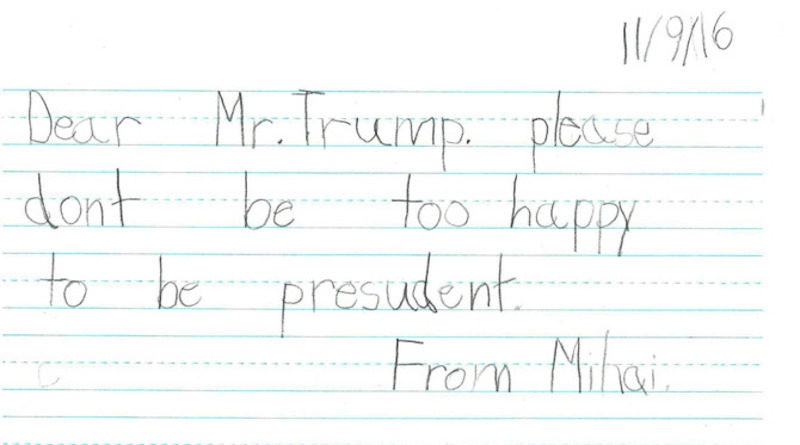 11/9/16
Dear Mr. Trump. please
dont be too happy
to be presudent.
From Mihai.